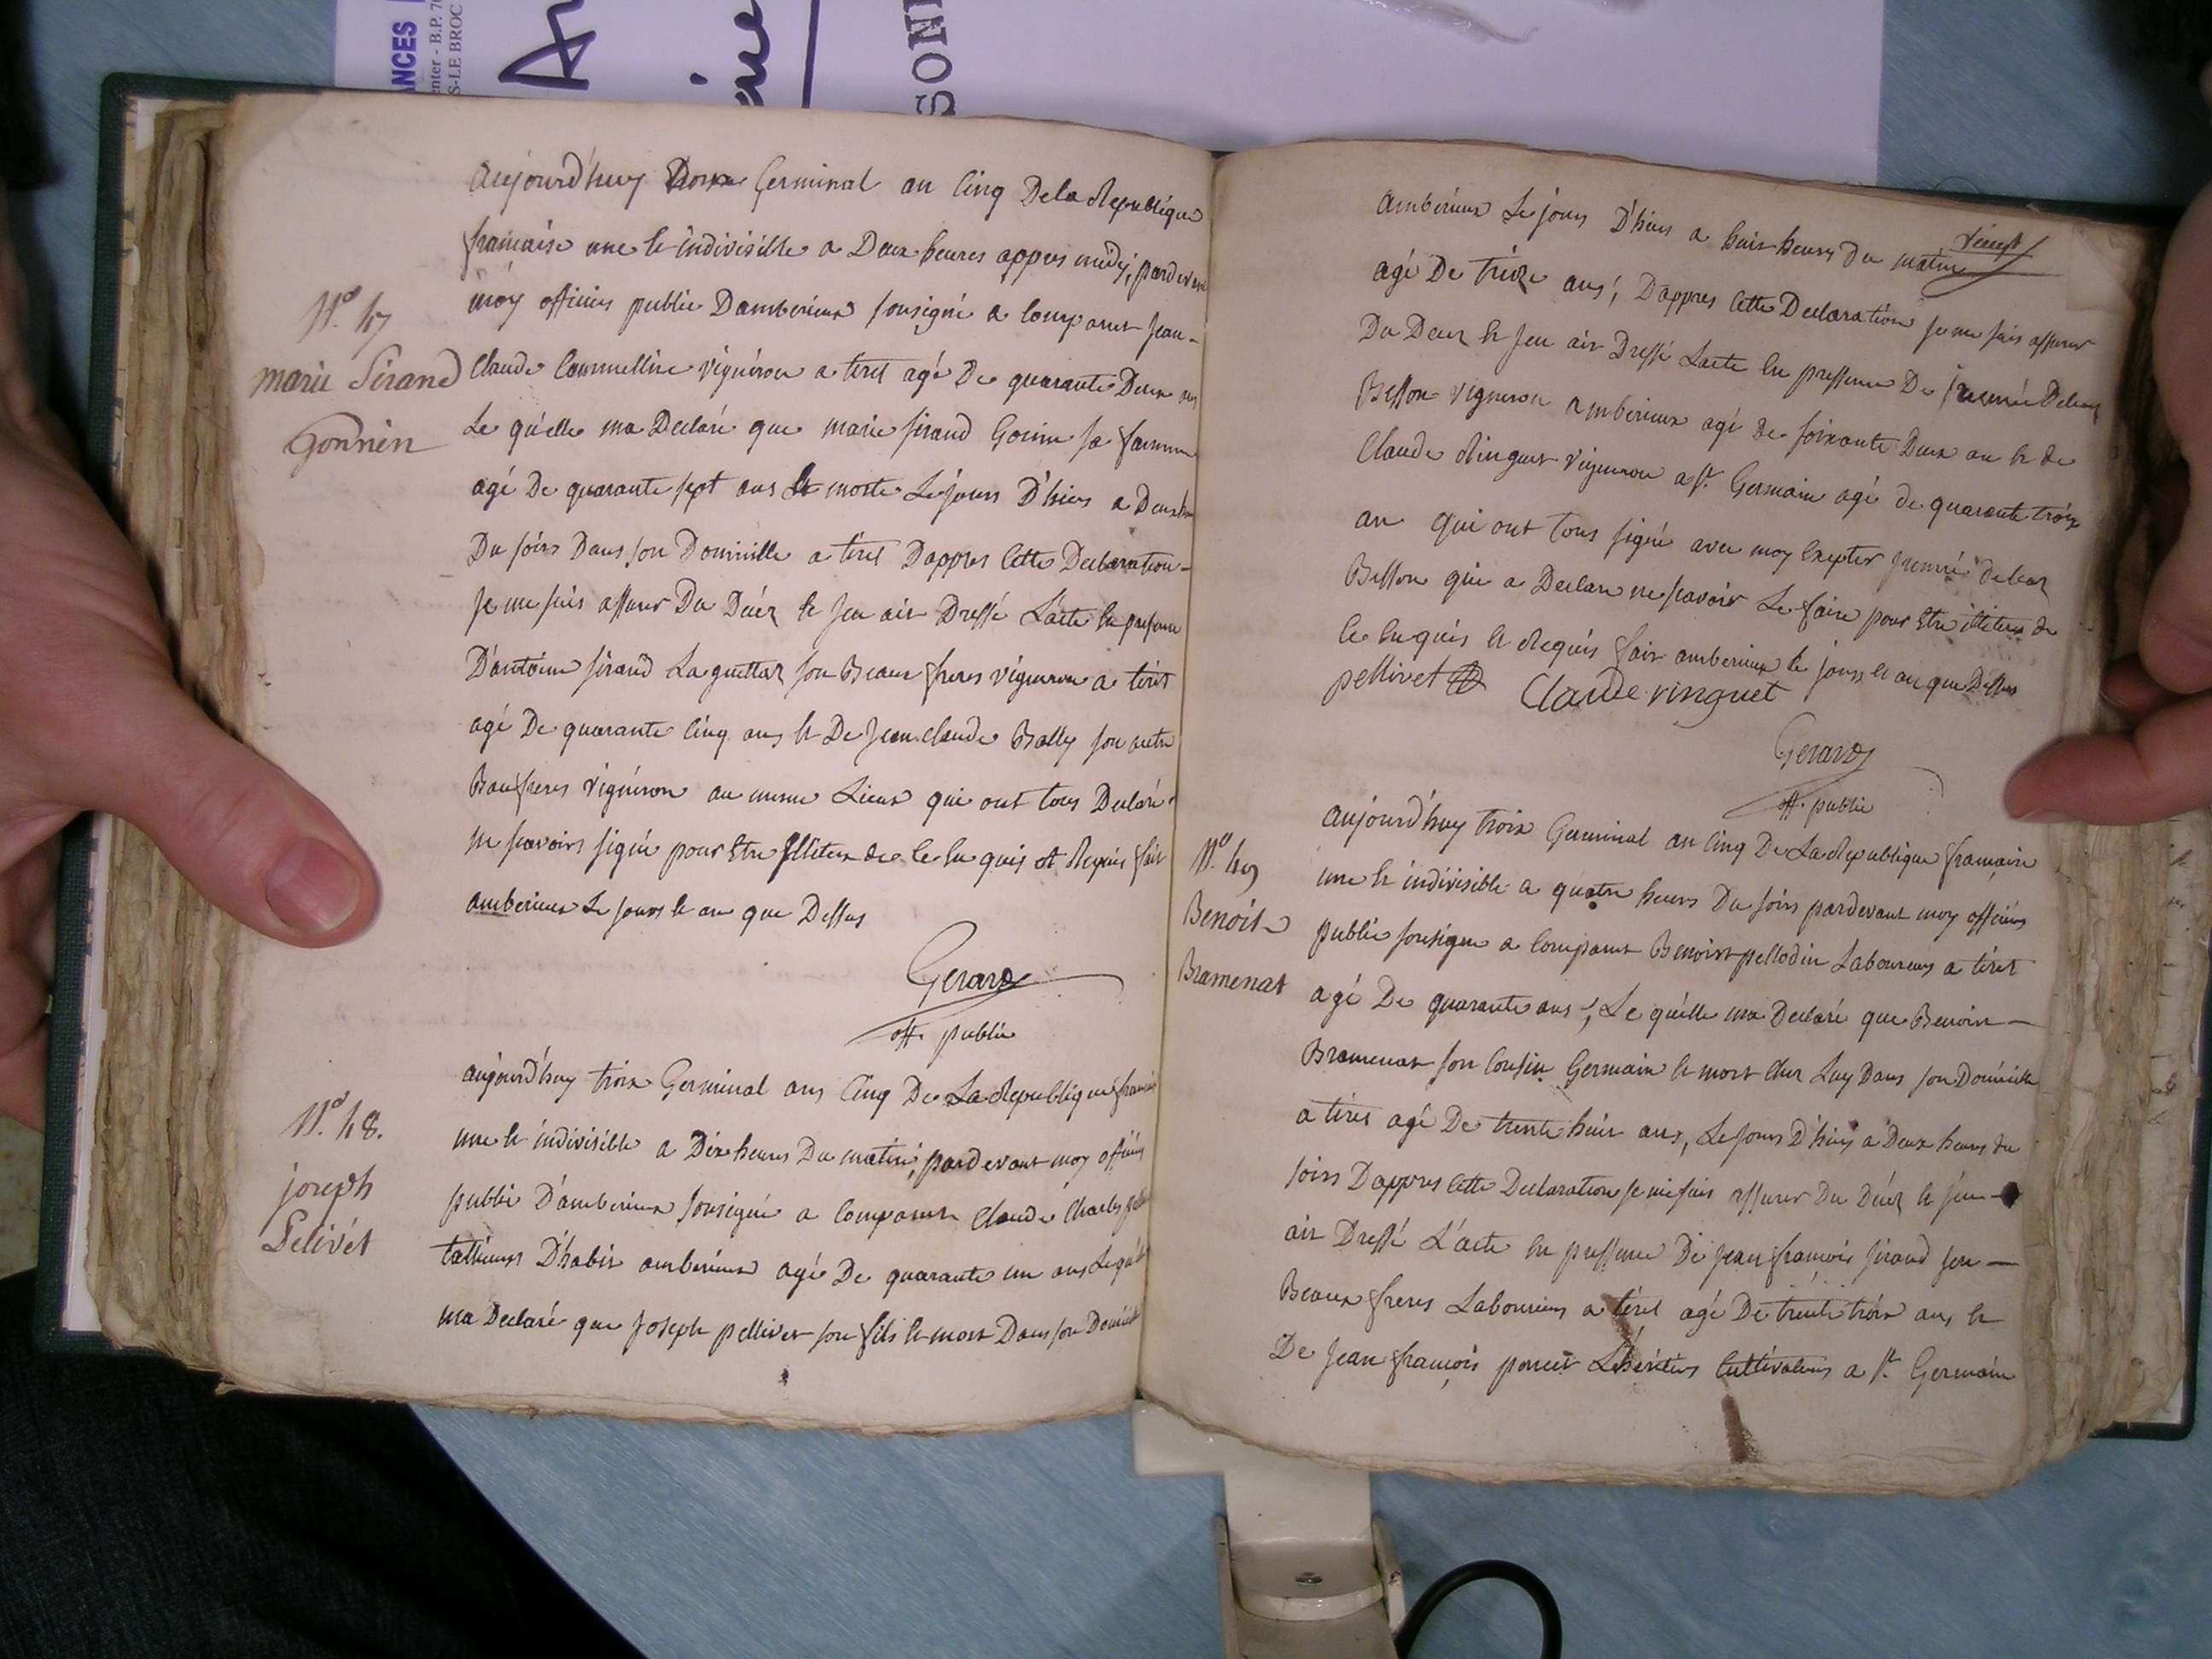 ANCES
enter - B.P. 70
S-LE BROC
SON
aujourd'huy Germinal an Cinq De la Republique
française une et indivisible a Deux heures appres midy, pardevant
moy officier public Damberieux sousigné a comparut Jean-
Claude vigneron a tiret agé De quarante Deux ans
Le quelle ma Declaré que marie sirand Gonin sa famme
agé De quarante sept ans Et morte Le jours D'hier a Deux
Du soirs Dans son Domicille a tiret Dappres Cette Declaration-
Je me suis assurer Du Décez et Jeu ait Dressé L'acte En presence
D'antoine sirand Laguettaz son Beaux freres vigneron a tiret
agé De quarante Cinq ans Et De Jean Claude Bally son autre
Beaufreres vigneron au meme Lieux qui ont tous Declaré
ne savoirs signé pour Etre Illiteré de Ce En quis et Requis fait
amberieux Le jours Et an que Dessus
Gerard
off. public
N.o 47
marie Sirand
Gonnin
aujourd'huy troix Germinal ans Cinq De La Republique
une Et indivisible a Dix heures Du matin, pardevant moy officier
public D'amberieux sousigné a Comparut Claude Charles
tallieur D'habit amberieux agé De quarante un ans Le
ma Declaré que Joseph pellivet son fils Et mort Dans son Domicille
N.o 48.
joseph
Pelivét
amberieux Le jours D'hier a huit heures Du matin
agé De treize ans, Dappres Cette Declaration Je me suis assurer
Du Decez Et Jeu ait Dressé L'acte En pressence De
Besson vigneron amberieux agé de soixante Deux an Et de
Claude Ringuet vigneron a St. Germain agé de quarante troix
an qui ont tous signé avec moy Excepter
Besson qui a Declaré ne savoir Le faire pour Etre illiteré de
Ce Enquis Et Requis fait amberieux le jours Et an que Dessus
pellivet Claude ringuet
Gerard
off. public
aujourd'huy troix Germinal an Cinq De La Republique francaise
une Et indivisible a quatre heures Du soirs pardevant moy officier
public sousigne a Comparut Benoist pellodin Laboureurs a tiret
agé De quarante ans, Le quelle ma Declaré que Benoit -
Bramenat son Cousin Germain Et mort Chez Luy Dans son Domicille
a tiret agé De trente huit ans, Le jours D'hier a Deux heures du
soirs Dappres Cette Declaration Je me suis assurer Du Décez Et Jeu -
ait Dressé L'acte En pressence De Jean francois sirand son -
Beaux freres Laboureurs a tiret agé De trente troix ans Et
De Jean françois poncet L'héritier Cultivateurs a St. Germain
N.o 49
Benoit
Bramenat